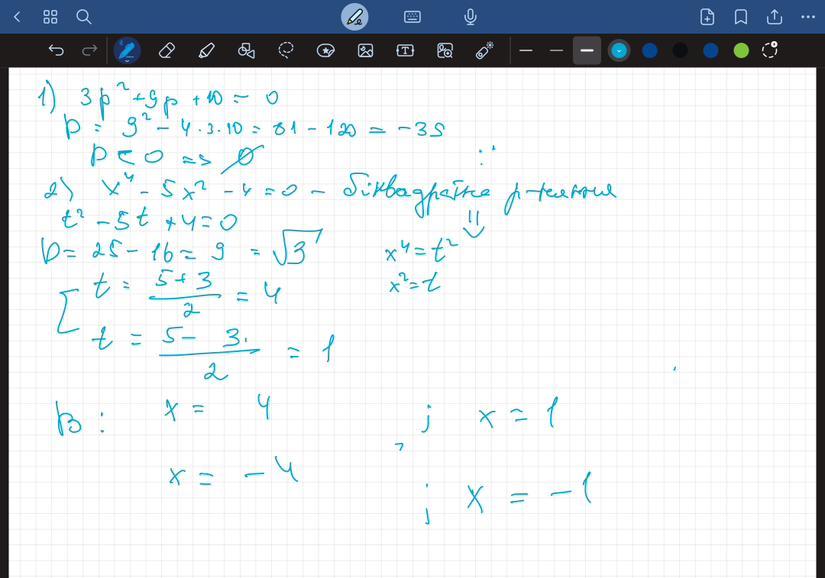 1) 3p² + 9p + 10 = 0
D = 9² - 4·3·10 = 81 - 120 = -35
D < 0 => ∅
2) x⁴ - 5x² - 4 = 0 - біквадратне рівняння
t² - 5t + 4 = 0
D = 25 - 16 = 9 = √3
x⁴ = t²
x² = t
t = (5+3)/2 = 4
t = (5-3)/2 = 1
В: x = 4 ; x = 1
x = -4 ; x = -1